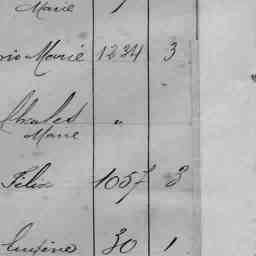 Marie 1
Marié 1234 3
Charles "
Marie
Félix 1057 3
Eugène 30 1